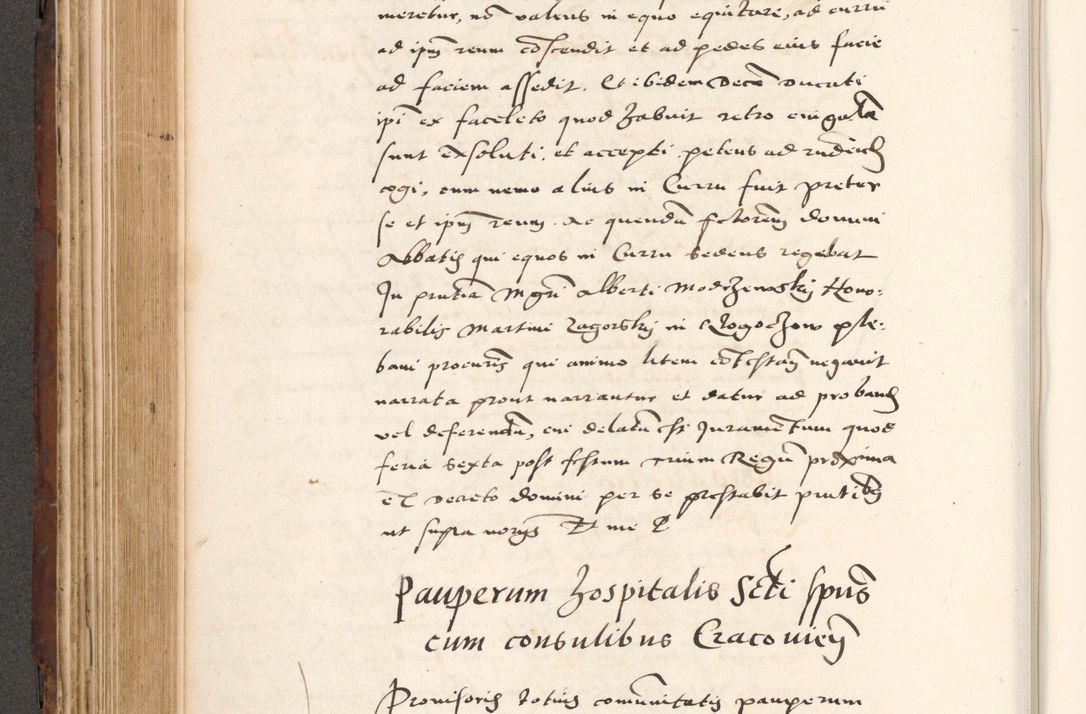 meretur, nō valens in equo equitare, ad currū
ad ipm̄ reum cōscendit et ad pedes eius facie
ad faciem assedit. Et ibidem decē ducati
ipī ex faceleto quod habuit retro cingulā
sunt exsoluti, et accepti petens ad
cogi, cum nemo alius in Curru fuit preter
se et ipm̄ reum. Ac quendā domini
Abbatis qui equos in Curru sedens regebat
In pn̄tia Mgrī Alberti Modzewskj Hono:
rabilis Martini Zagorskj in Rogoczow ple:
bani procuris qui animo litem negavit
narrata prout narrantur et datur ad proband
vel deferendū, cui delatū est Juramētum quod
feria sexta post festum trium Regū proxima
ex decreto domini per se prestabit pn̄tibus
ut supra me
Pauperum hospitalis Scti spūs
cum consulibus Cracovien̄
Provisoris totius comūnitatis pauperum